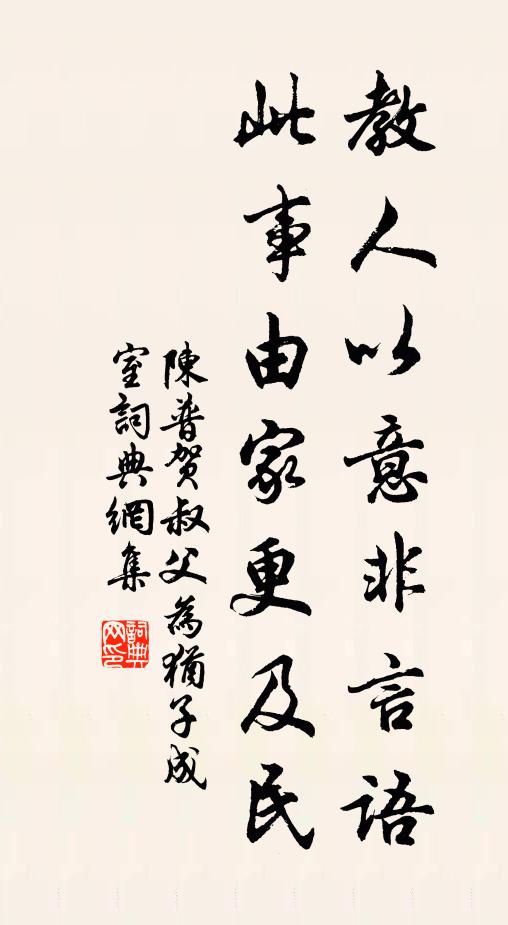 教人以意非言語
此事由家更及民
陳普賀叔父為猶子成
室詞典網集
詞典网印